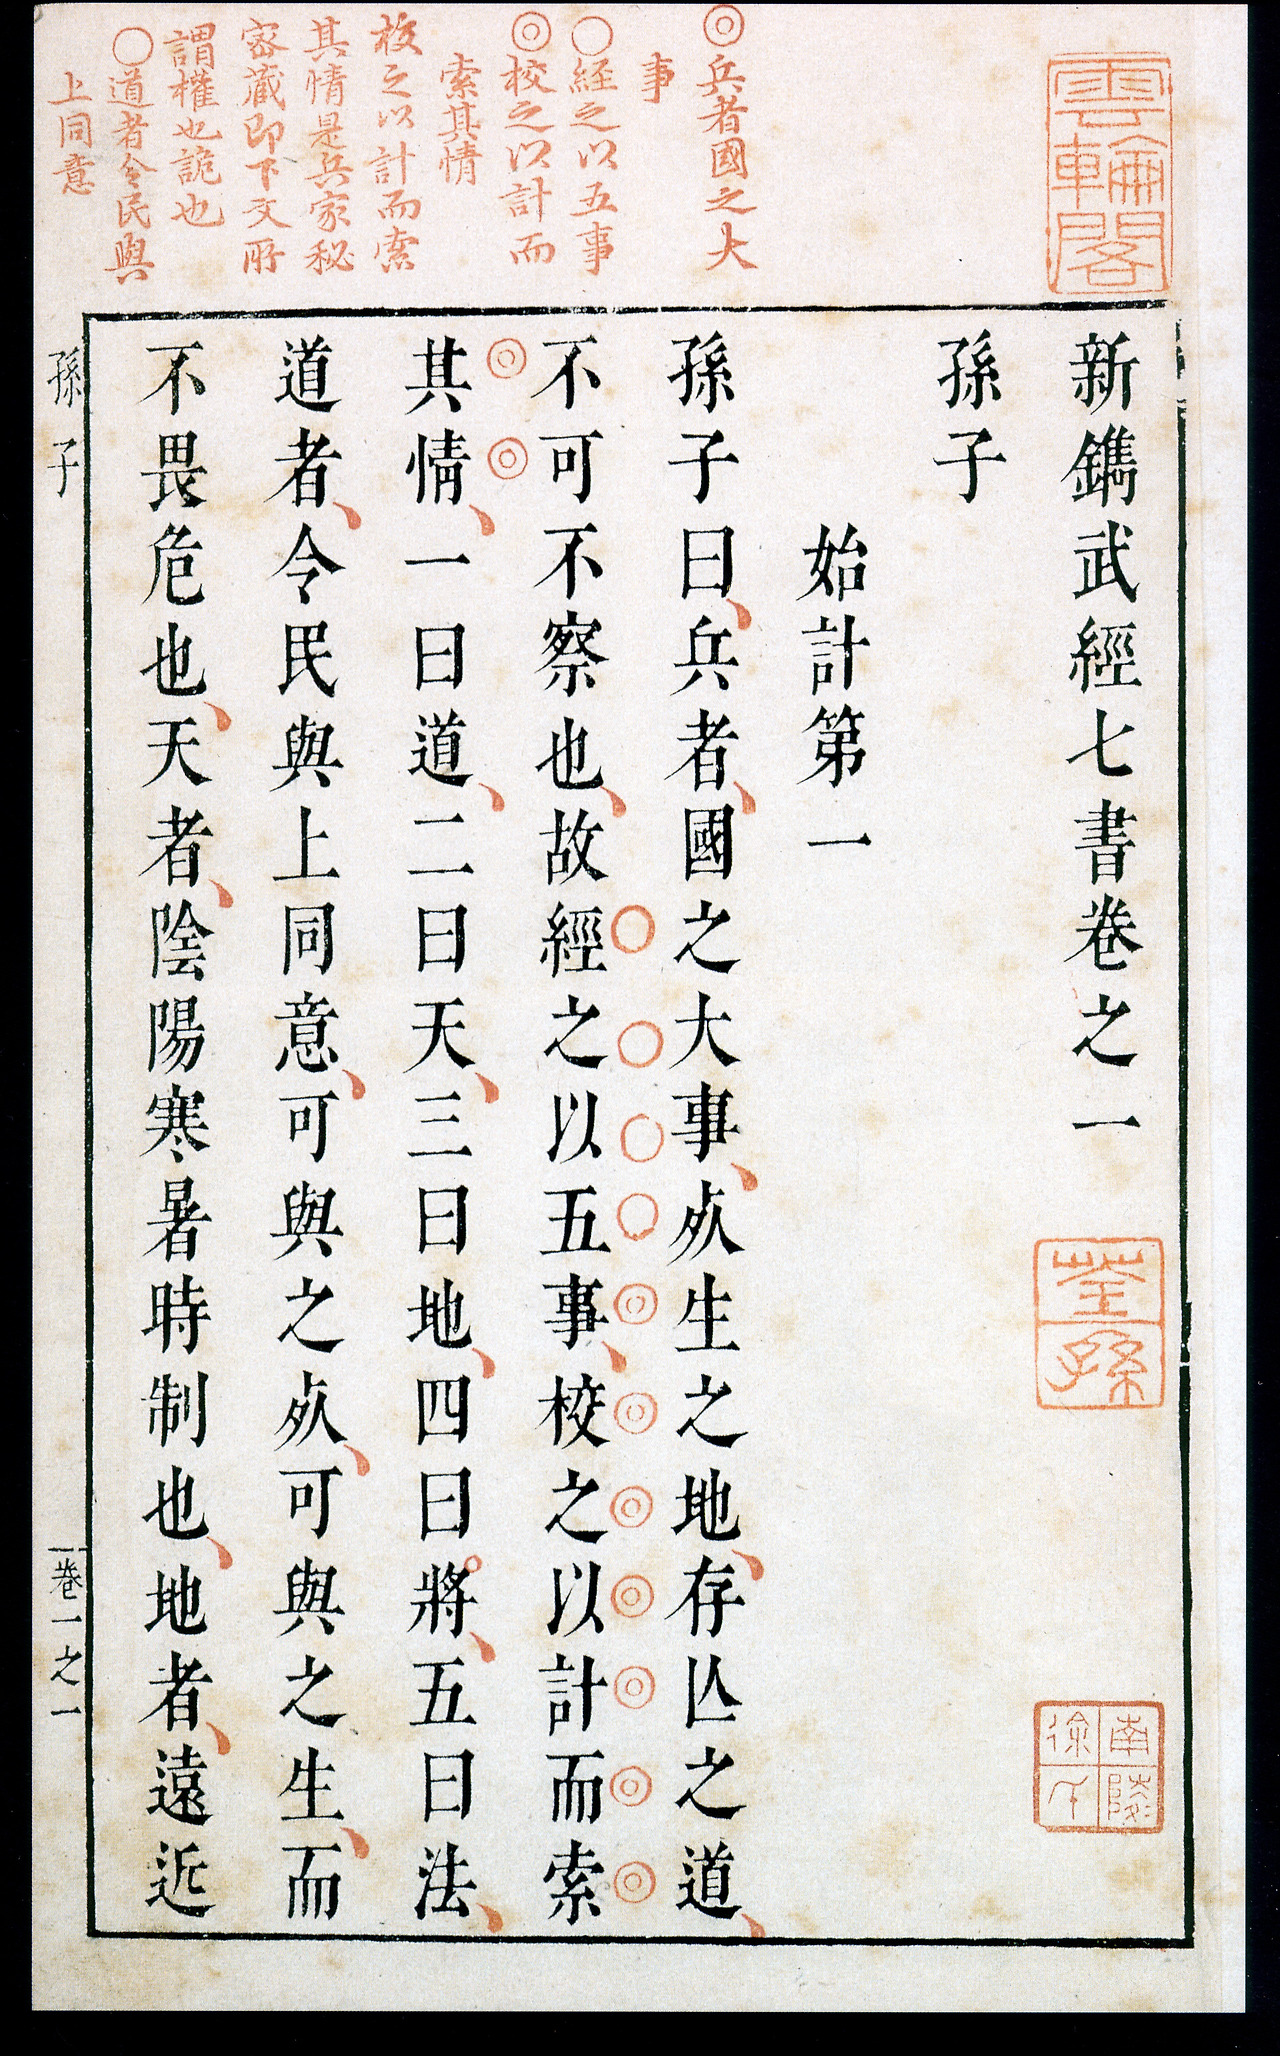 ◎兵者國之大
事
○經之以五事
◎校之以計而
索其情
校之以計而索
其情是兵家秘
密藏即下文所
謂權也詭也
○道者令民與
上同意
新鐫武經七書卷之一
孫子
始計第一
孫子曰、兵者、國之大事、死生之地、存亾之道、
不可不察也、故經之以五事、校之以計而索
其情、一曰道、二曰天、三曰地、四曰將、五曰法、
道者、令民與上同意、可與之死、可與之生、而
不畏危也、天者、陰陽寒暑時制也、地者、遠近
孫子
卷一之一
雲輪閣
荃孫
南陵
徐